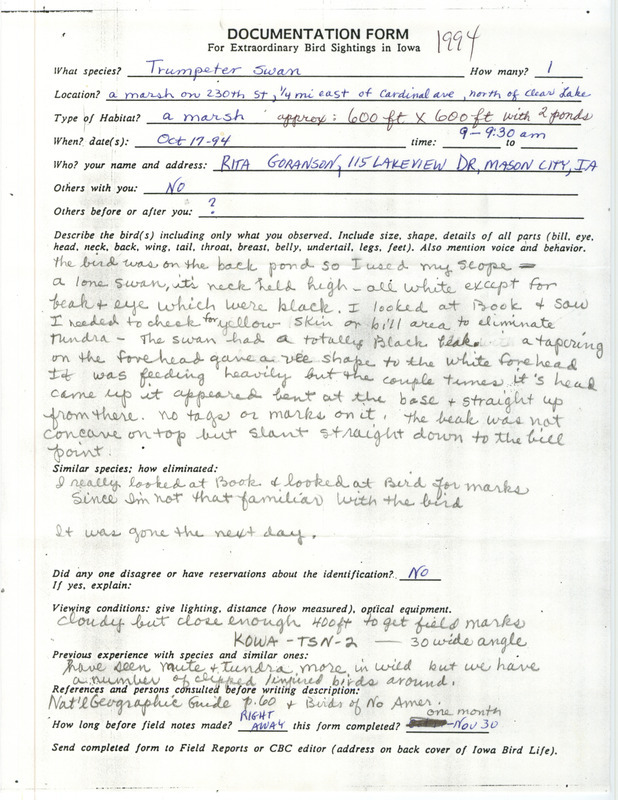 DOCUMENTATION FORM
For Extraordinary Bird Sightings in Iowa 1994
What species? Trumpeter Swan How many? 1
Location? a marsh on 230th St, 1/4 mi east of Cardinal ave, north of Clear Lake
Type of Habitat? a marsh approx: 600 ft X 600 ft with 2 ponds
When? date(s): Oct 17-94 time: 9 - 9:30 am to
Who? your name and address: RITA GORANSON, 115 LAKEVIEW DR, MASON CITY, IA
Others with you: NO
Others before or after you: ?
Describe the bird(s) including only what you observed. Include size, shape, details of all parts (bill, eye,
head, neck, back, wing, tail, throat, breast, belly, undertail, legs, feet). Also mention voice and behavior.
The bird was on the back pond so I used my scope -
a lone swan, it's neck held high - all white except for
beak & eye which were black. I looked at Book & saw
I needed to check for yellow skin or bill area to eliminate
Tundra - The swan had a totally Black beak a tapering
on the forehead gave a vee shape to the white forehead
It was feeding heavily but the couple times it's head
came up it appeared bent at the base & straight up
from there. no tags or marks on it. the beak was not
concave on top but slant straight down to the bill
point.
Similar species; how eliminated:
I really looked at Book & looked at Bird for marks
Since I'm not that familiar with the bird
It was gone the next day.
Did any one disagree or have reservations about the identification? NO
If yes, explain:
Viewing conditions: give lighting, distance (how measured), optical equipment.
Cloudy but close enough 400ft to get field marks
KOWA - TSN-2 — 30 wide angle
Previous experience with species and similar ones:
have seen mute & tundra, more in wild but we have
a number of clipped injured birds around.
References and persons consulted before writing description:
Nat'l Geographic Guide p.60 & Birds of No Amer.
How long before field notes made? RIGHT AWAY this form completed? one month - Nov 30
Send completed form to Field Reports or CBC editor (address on back cover of Iowa Bird Life).